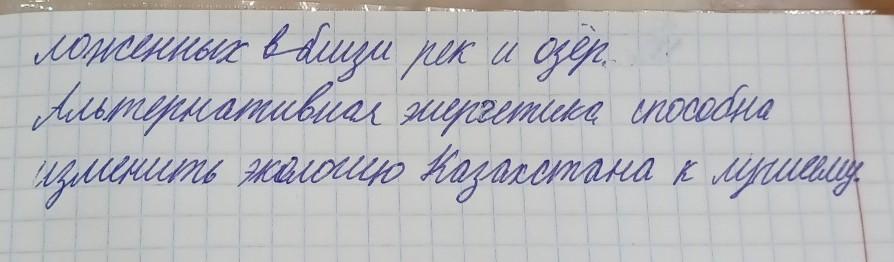 ложенных вблизи рек и озёр.
Альтернативная энергетика способна
изменить экологию Казахстана к лучшему.